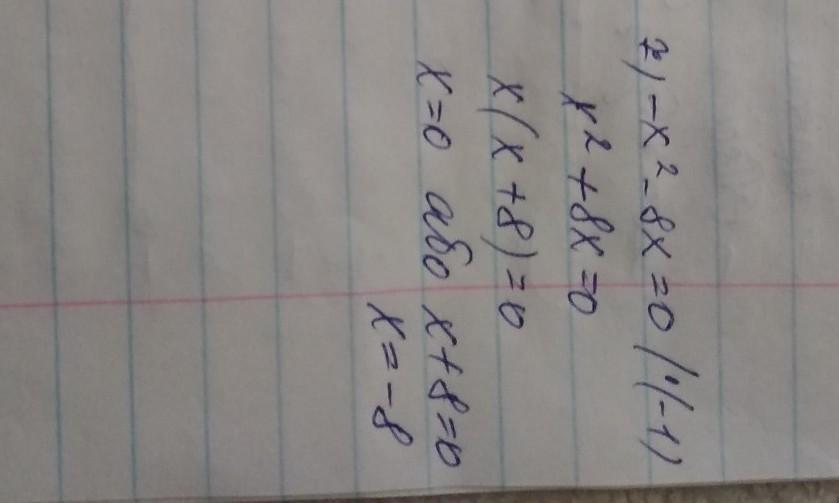 2) -x² - 8x = 0 /·(-1)
x² + 8x = 0
x(x + 8) = 0
x = 0 або x + 8 = 0
x = -8